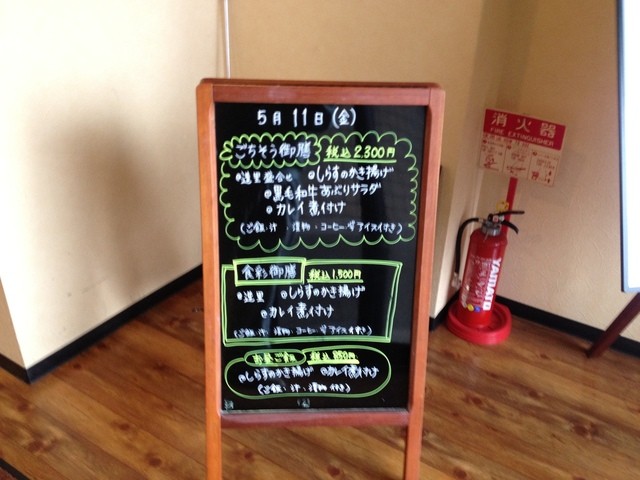 5月11日(金)
ごちそう御膳 税込2.300円
・道里盛合せ ・しらすのかき揚げ
・黒毛和牛あぶりサラダ
・カレイ煮付け
(ご飯・汁・漬物・コーヒー・アイス付き)
食彩御膳 税込1,500円
・道里 ・しらすのかき揚げ
・カレイ煮付け
(ご飯・汁・漬物・コーヒー・アイス付き)
お昼ご飯 税込850円
・しらすのかき揚げ ・カレイ煮付け
(ご飯・汁・漬物付き)
消火器
FIRE EXTINGUISHER
YAMATO